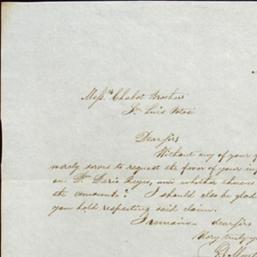 Mess^rs Chabot Brothers
Sn Luis Potosi
Dear Sirs
Without any of your f
merely serves to request the favor of your inf
on F. Dario Reyes, and whether chances
the amount? I should also be glad
you hold respecting said claim.
I remain dear Sirs
Very truly yo